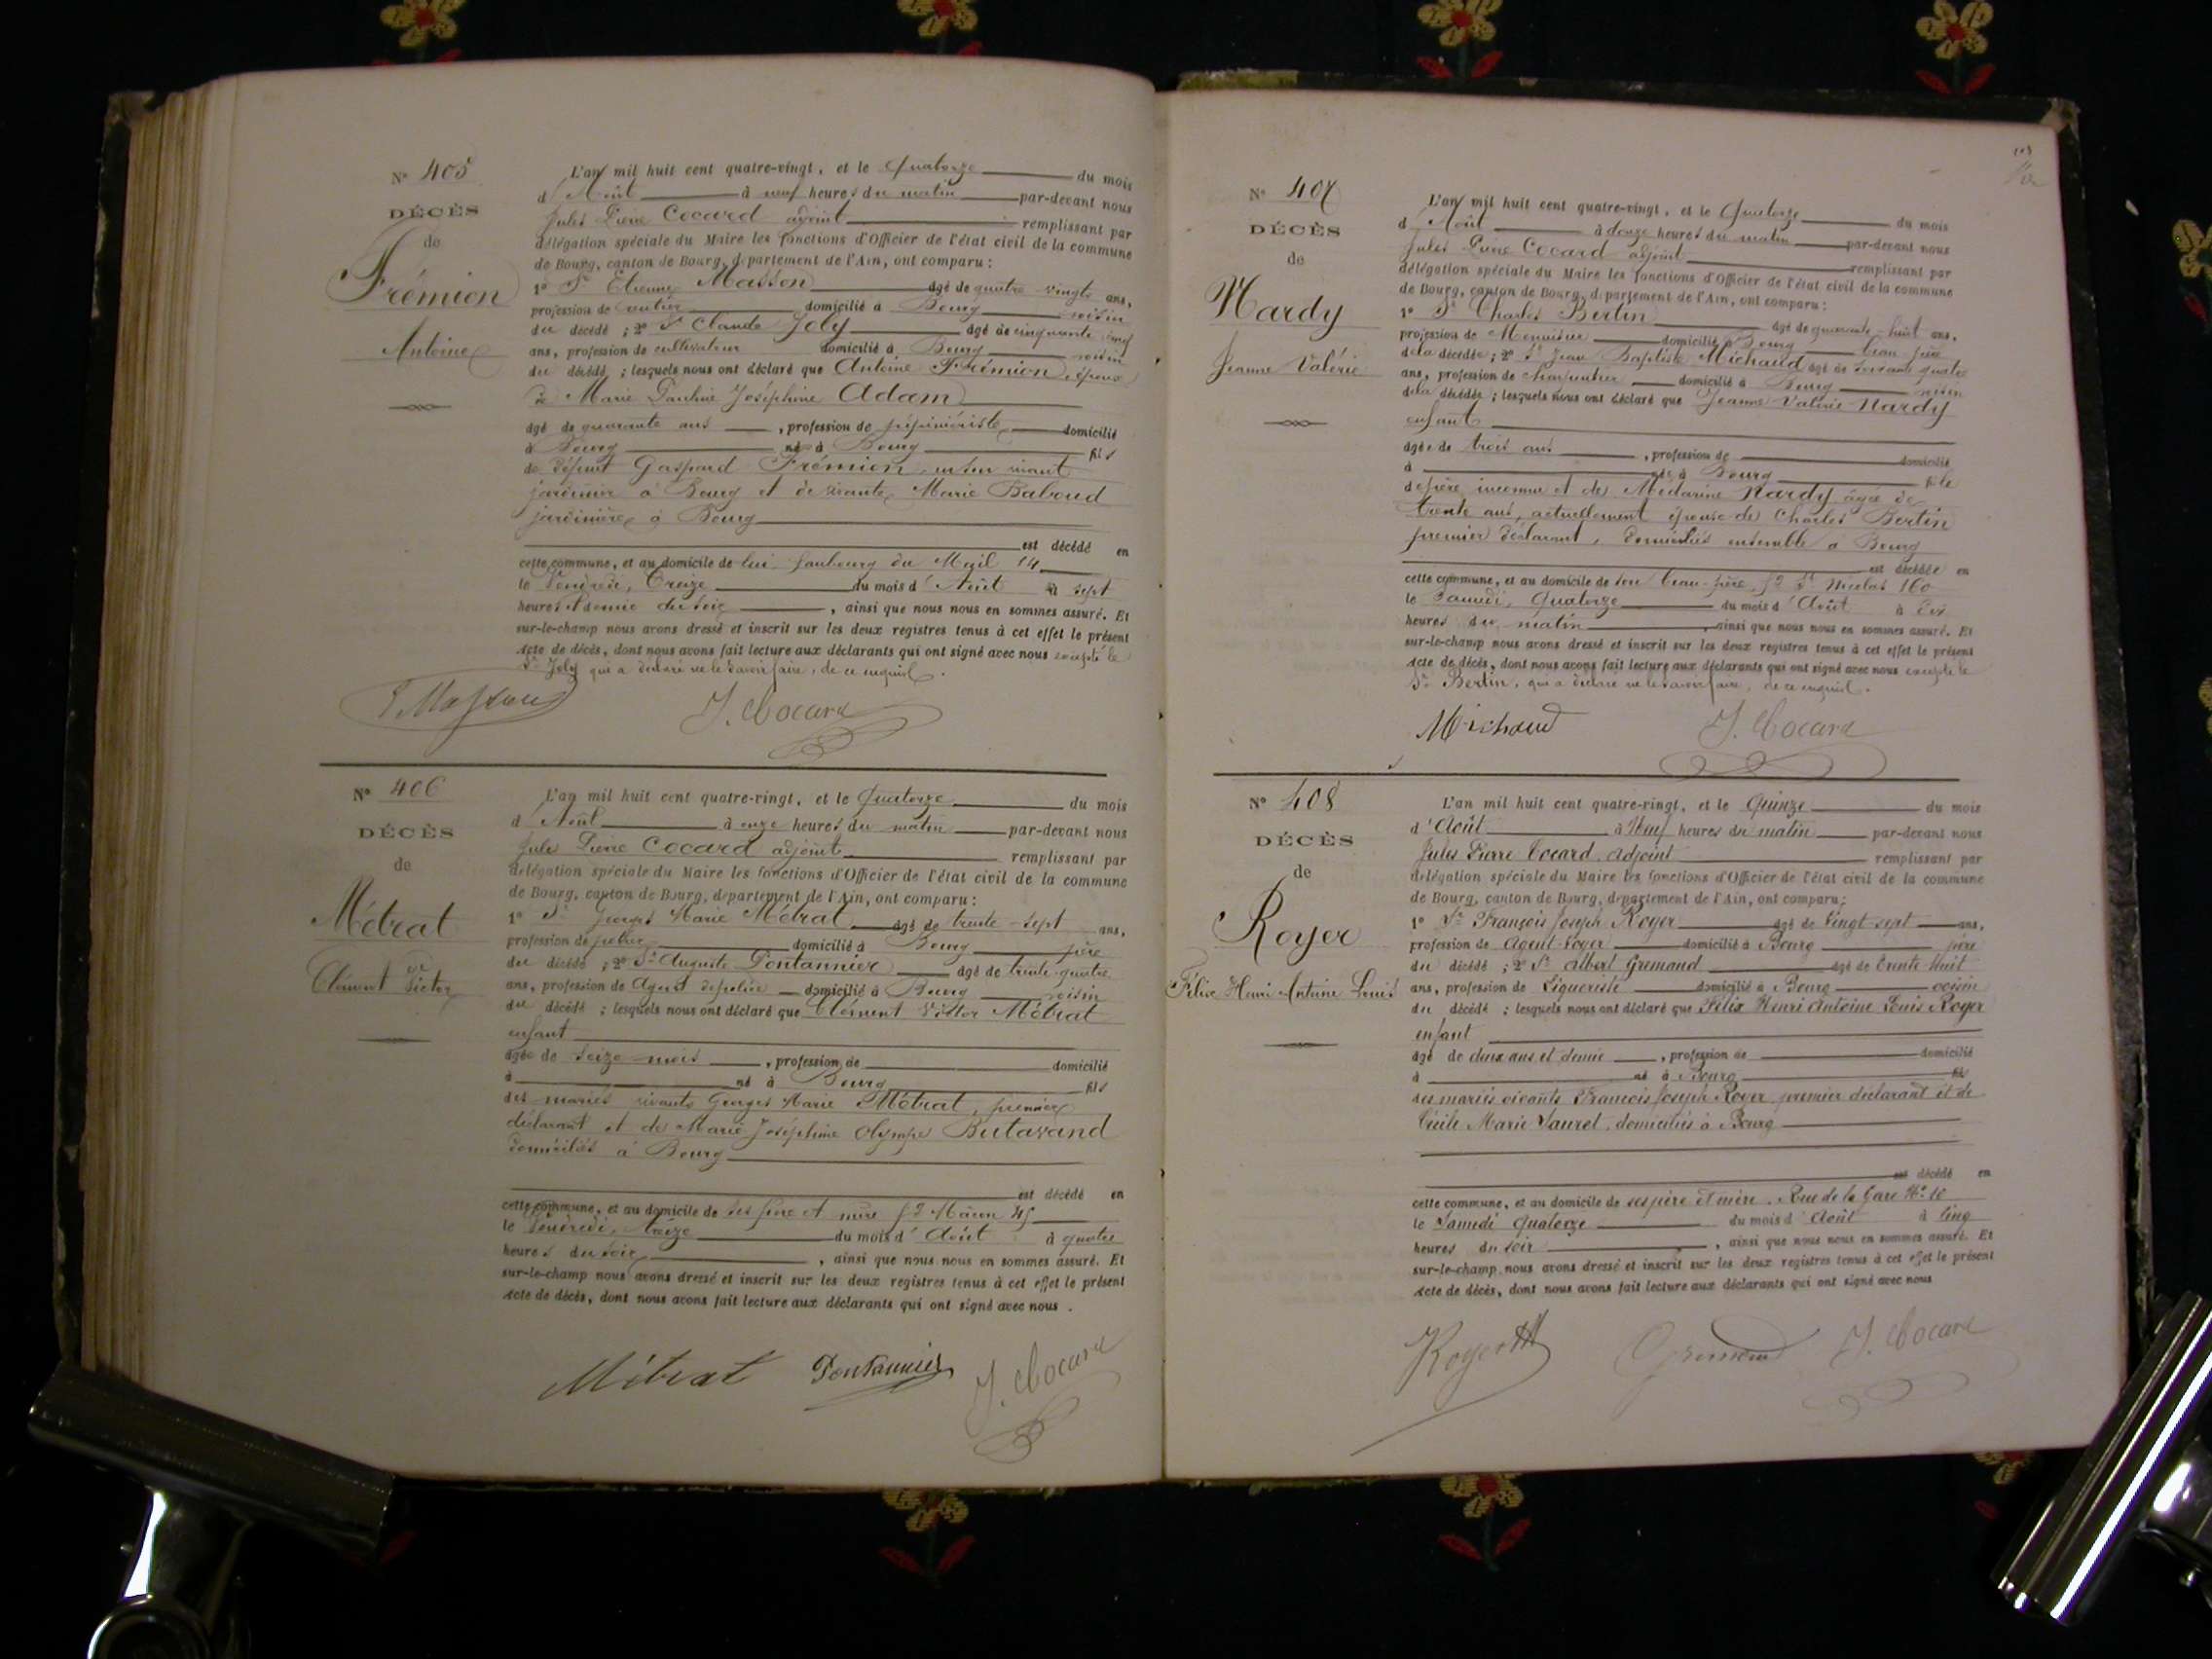 N° 405
DÉCÈS
de
Frémion
Antoine
L'an mil huit cent quatre-vingt, et le Quatorze du mois
d'Août à neuf heures du matin par-devant nous
Jules Pierre Cocard adjoint remplissant par
délégation spéciale du Maire les fonctions d'Officier de l'état civil de la commune
de Bourg, canton de Bourg, département de l'Ain, ont comparu :
1° Sr Etienne Masson âgé de quatre vingts ans,
profession de rentier domicilié à Bourg voisin
du décédé ; 2° Sr Claude Joly âgé de cinquante
ans, profession de cultivateur domicilié à Bourg voisin
du décédé ; lesquels nous ont déclaré que Antoine Frémion, époux
de Marie Pauline Joséphine Adam
âgé de quarante ans , profession de pépiniériste domicilié
à Bourg né à Bourg fils
de défunt Gaspard Frémion, en son vivant
jardinier à Bourg et de vivante Marie Baboud
jardinière à Bourg
est décédé en
cette commune, et au domicile de lui faubourg du Mail 14
le Vendredi, Treize du mois d'Août à sept
heures et demie du soir , ainsi que nous nous en sommes assuré. Et
sur-le-champ nous avons dressé et inscrit sur les deux registres tenus à cet effet le présent
acte de décès, dont nous avons fait lecture aux déclarants qui ont signé avec nous excepté le
Sr Joly qui a déclaré ne le savoir faire, de ce enquis.
J. Cocard
N° 406
DÉCÈS
de
Métrat
Clément Victor
L'an mil huit cent quatre-vingt, et le Quatorze du mois
d'Août à onze heures du matin par-devant nous
Jules Pierre Cocard adjoint remplissant par
délégation spéciale du Maire les fonctions d'Officier de l'état civil de la commune
de Bourg, canton de Bourg, département de l'Ain, ont comparu :
1° Sr Georges Marie Métrat âgé de trente-sept ans,
profession de domicilié à Bourg père
du décédé ; 2° Sr Auguste Pontannier âgé de trente-quatre
ans, profession de Agent de police domicilié à Bourg voisin
du décédé ; lesquels nous ont déclaré que Clément Victor Métrat
enfant
âgé de seize mois , profession de domicilié
à né à Bourg fils
des mariés vivants Georges Marie Métrat, premier
déclarant et de Marie Joséphine Olympe Butavand
domiciliés à Bourg
est décédé en
cette commune, et au domicile de ses père et mère fg Mâcon 45
le Vendredi, treize du mois d'Août à quatre
heures du soir , ainsi que nous nous en sommes assuré. Et
sur-le-champ nous avons dressé et inscrit sur les deux registres tenus à cet effet le présent
acte de décès, dont nous avons fait lecture aux déclarants qui ont signé avec nous .
Métrat Pontannier J. Cocard
N° 407
DÉCÈS
de
Nardy
Jeanne Valérie
L'an mil huit cent quatre-vingt, et le Quatorze du mois
d'Août à douze heures du matin par-devant nous
Jules Pierre Cocard adjoint remplissant par
délégation spéciale du Maire les fonctions d'Officier de l'état civil de la commune
de Bourg, canton de Bourg, département de l'Ain, ont comparu :
1° Sr Charles Bertin âgé de quarante-huit ans,
profession de Menuisier domicilié à Bourg beau-père
de la décédée ; 2° Sr Jean Baptiste Michaud âgé de soixante quatre
ans, profession de charpentier domicilié à Bourg voisin
de la décédée ; lesquels nous ont déclaré que Jeanne Valérie Nardy
enfant
âgée de trois ans , profession de domicilié
à née à Bourg fille
de père inconnu et de Médarine Nardy âgée de
trente ans, actuellement épouse de Charles Bertin
premier déclarant, domiciliés ensemble à Bourg
est décédée en
cette commune, et au domicile de son beau-père fg St Nicolas 160
le Samedi, Quatorze du mois d'Août à dix
heures du matin , ainsi que nous nous en sommes assuré. Et
sur-le-champ nous avons dressé et inscrit sur les deux registres tenus à cet effet le présent
acte de décès, dont nous avons fait lecture aux déclarants qui ont signé avec nous excepté le
Sr Bertin, qui a déclaré ne le savoir faire, de ce enquis.
Michaud J. Cocard
N° 408
DÉCÈS
de
Royer
Félix Henri Antoine Louis
L'an mil huit cent quatre-vingt, et le Quinze du mois
d'Août à Neuf heures du matin par-devant nous
Jules Pierre Cocard, adjoint remplissant par
délégation spéciale du Maire les fonctions d'Officier de l'état civil de la commune
de Bourg, canton de Bourg, département de l'Ain, ont comparu :
1° Sr François Joseph Royer âgé de Vingt-sept ans,
profession de Agent-Voyer domicilié à Bourg père
du décédé ; 2° Sr Albert Gremaud âgé de Trente Huit
ans, profession de Liquoriste domicilié à Bourg voisin
du décédé ; lesquels nous ont déclaré que Félix Henri Antoine Louis Royer
enfant
âgé de deux ans et demie , profession de domicilié
à né à Bourg fils
des mariés vivants François Joseph Royer premier déclarant et de
Cécile Marie Vauret, domiciliés à Bourg
est décédé en
cette commune, et au domicile de ses père et mère, Rue de la Gare N° 10
le Samedi Quatorze du mois d'Août à Cinq
heures du soir , ainsi que nous nous en sommes assuré. Et
sur-le-champ nous avons dressé et inscrit sur les deux registres tenus à cet effet le présent
acte de décès, dont nous avons fait lecture aux déclarants qui ont signé avec nous
Royer Gremaud J. Cocard